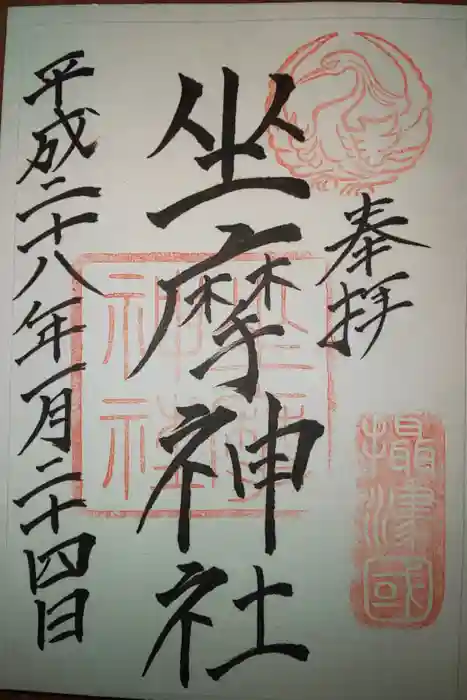 奉拝
攝津國
坐摩神社
平成二十八年一月二十四日